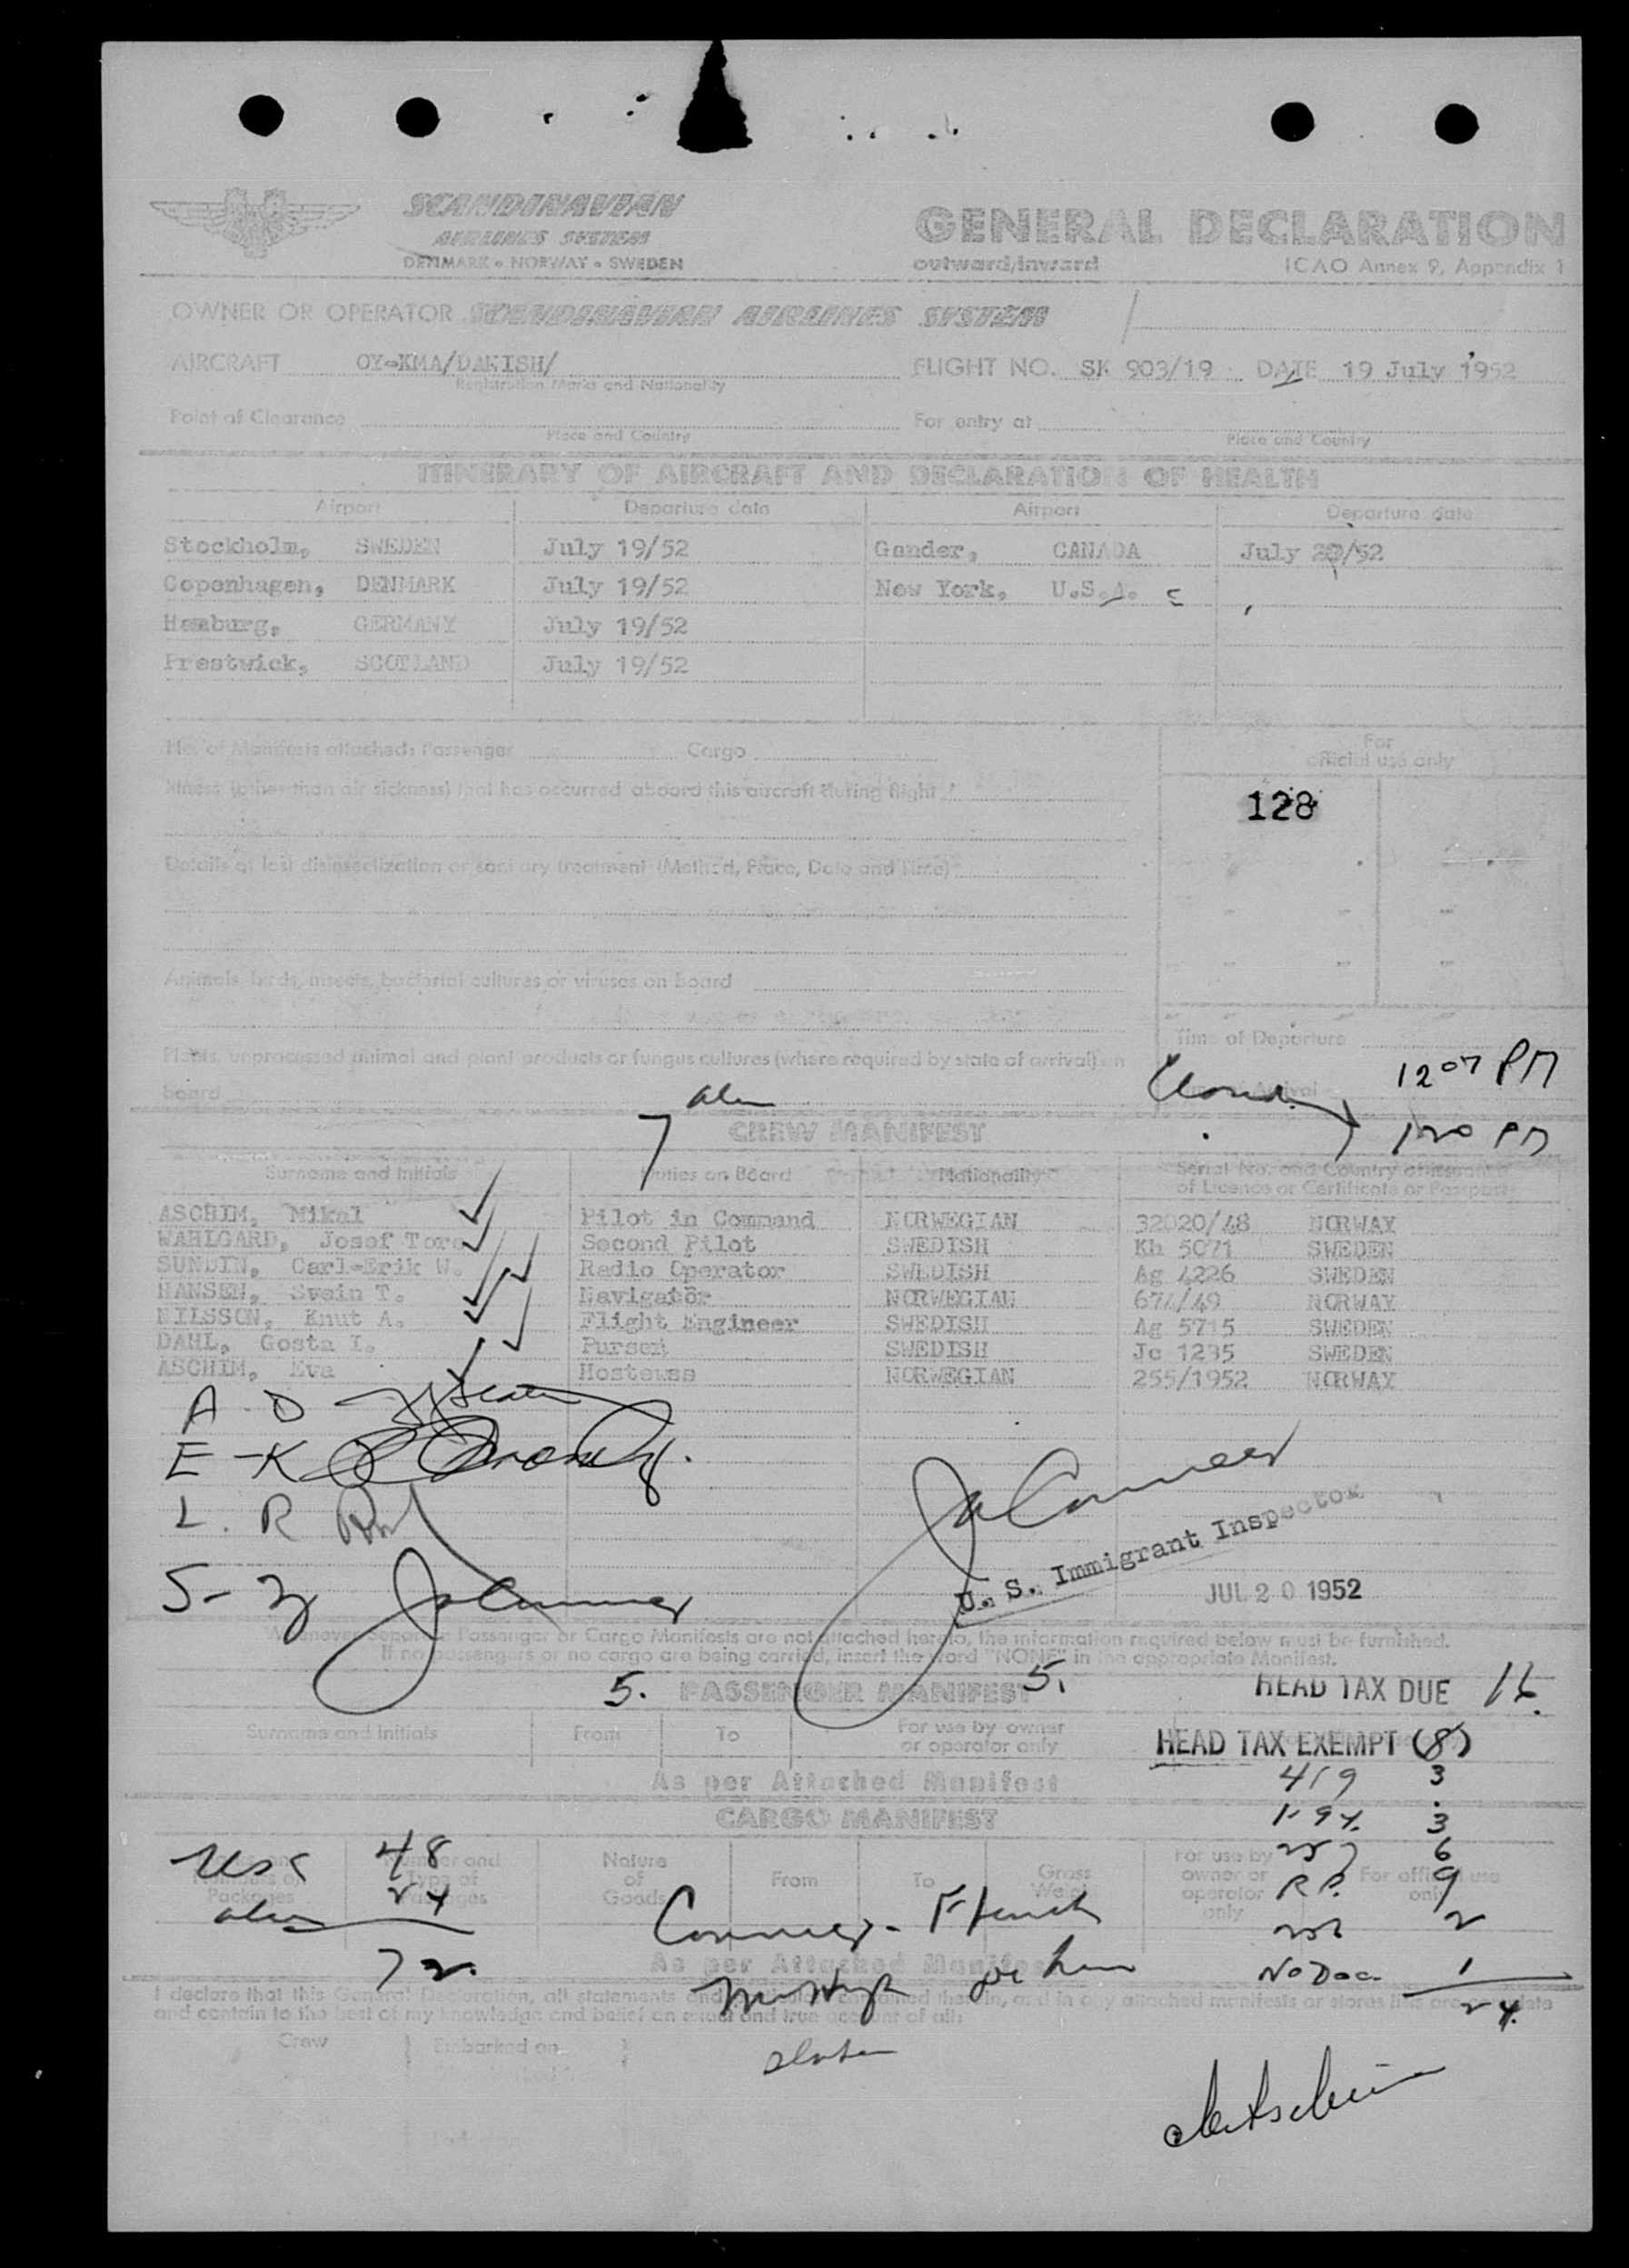 SCANDINAVIAN
AIRLINES SYSTEM
DENMARK • NORWAY • SWEDEN
GENERAL DECLARATION
outward/inward
ICAO Annex 9, Appendix 1
OWNER OR OPERATOR SCANDINAVIAN AIRLINES SYSTEM
AIRCRAFT OY-KMA/DANISH/ FLIGHT NO. SK 903/19 DATE 19 July 1952
Registration Marks and Nationality
Point of Clearance For entry at
Place and Country Place and Country
ITINERARY OF AIRCRAFT AND DECLARATION OF HEALTH
Airport Departure date Airport Departure date
Stockholm, SWEDEN July 19/52 Gander, CANADA July 20/52
Copenhagen, DENMARK July 19/52 New York, U.S.A.
Hamburg, GERMANY July 19/52
Prestwick, SCOTLAND July 19/52
No. of Manifests attached: Passenger Cargo
For
official use only
Illness (other than air sickness) that has occurred aboard this aircraft during flight
128
Details of last disinsectization or sanitary treatment (Method, Place, Date and Time)
Animals, birds, insects, bacterial cultures or viruses on board
Time of Departure
Plants, unprocessed animal and plant products or fungus cultures (where required by state of arrival) on
board
Arrival
12 07 PM
120 PM
7
CREW MANIFEST
Surname and Initials Duties on Board Nationality Serial No. and Country of issuance
of Licence or Certificate or Passport
ASCHIM, Mikal Pilot in Command NORWEGIAN 32020/48 NORWAY
WAHLGARD, Josef Tore Second Pilot SWEDISH Kh 5071 SWEDEN
SUNDIN, Carl-Erik W. Radio Operator SWEDISH Ag 4226 SWEDEN
HANSEN, Svein T. Navigator NORWEGIAN 674/49 NORWAY
NILSSON, Knut A. Flight Engineer SWEDISH Ag 5715 SWEDEN
DAHL, Gosta I. Purser SWEDISH Jc 1235 SWEDEN
ASCHIM, Eva Hostess NORWEGIAN 255/1952 NORWAY
A - D
E - K
L - R
S - Z
U. S. Immigrant Inspector
JUL 20 1952
Whenever separate Passenger or Cargo Manifests are not attached hereto, the information required below must be furnished.
If no passengers or no cargo are being carried, insert the word "NONE" in the appropriate Manifest.
5. PASSENGER MANIFEST 5.
HEAD TAX DUE 16.
Surname and Initials From To For use by owner
or operator only
HEAD TAX EXEMPT (8)
As per Attached Manifest
419 3
CARGO MANIFEST
1-94. 3
257 6
R.P. 9
2
No Doc. 1
24.
48
24
72.
Number and
Type of
Packages
Nature
of
Goods
From To
Gross
Weight
For use by
owner or
operator
only
For official use
only
As per Attached Manifest
I declare that this General Declaration, all statements and
and contain to the best of my knowledge and belief an exact and true account of all:
Crew Embarked on